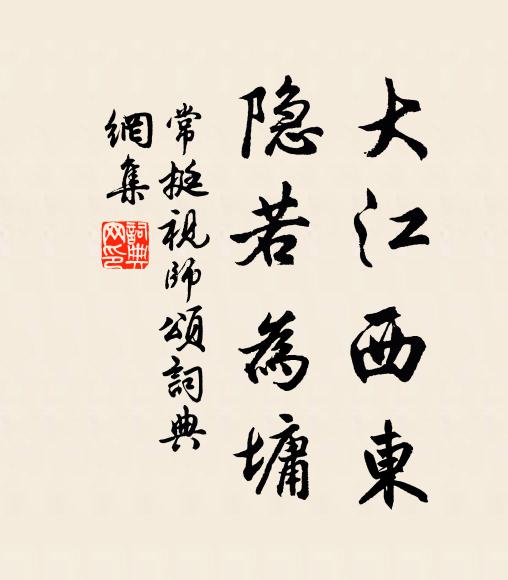 大江西東
隐若為墉
常挺視師頌詞典
網集
詞典
网印